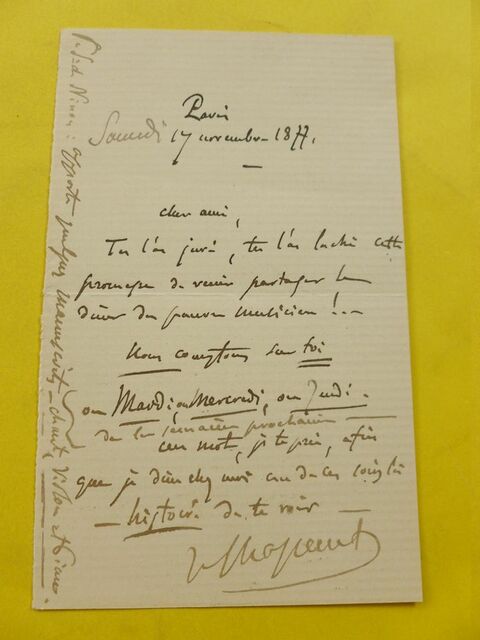 Paris
Samedi 17 novembre 1877.
cher ami,
Tu l'as juré, tu l'as lâché cette
promesse de venir partager le
dîner du pauvre musicien !..
Nous comptons sur toi
ou Mardi, ou Mercredi, ou Jeudi.
de la semaine prochaine
un mot, je te prie, afin
que je dîne chez moi un de ces soirs là
— histoire de te voir —
J. Massenet
P.S. de Ninon : apporte quelques manuscrits – chant, Violon et Piano.